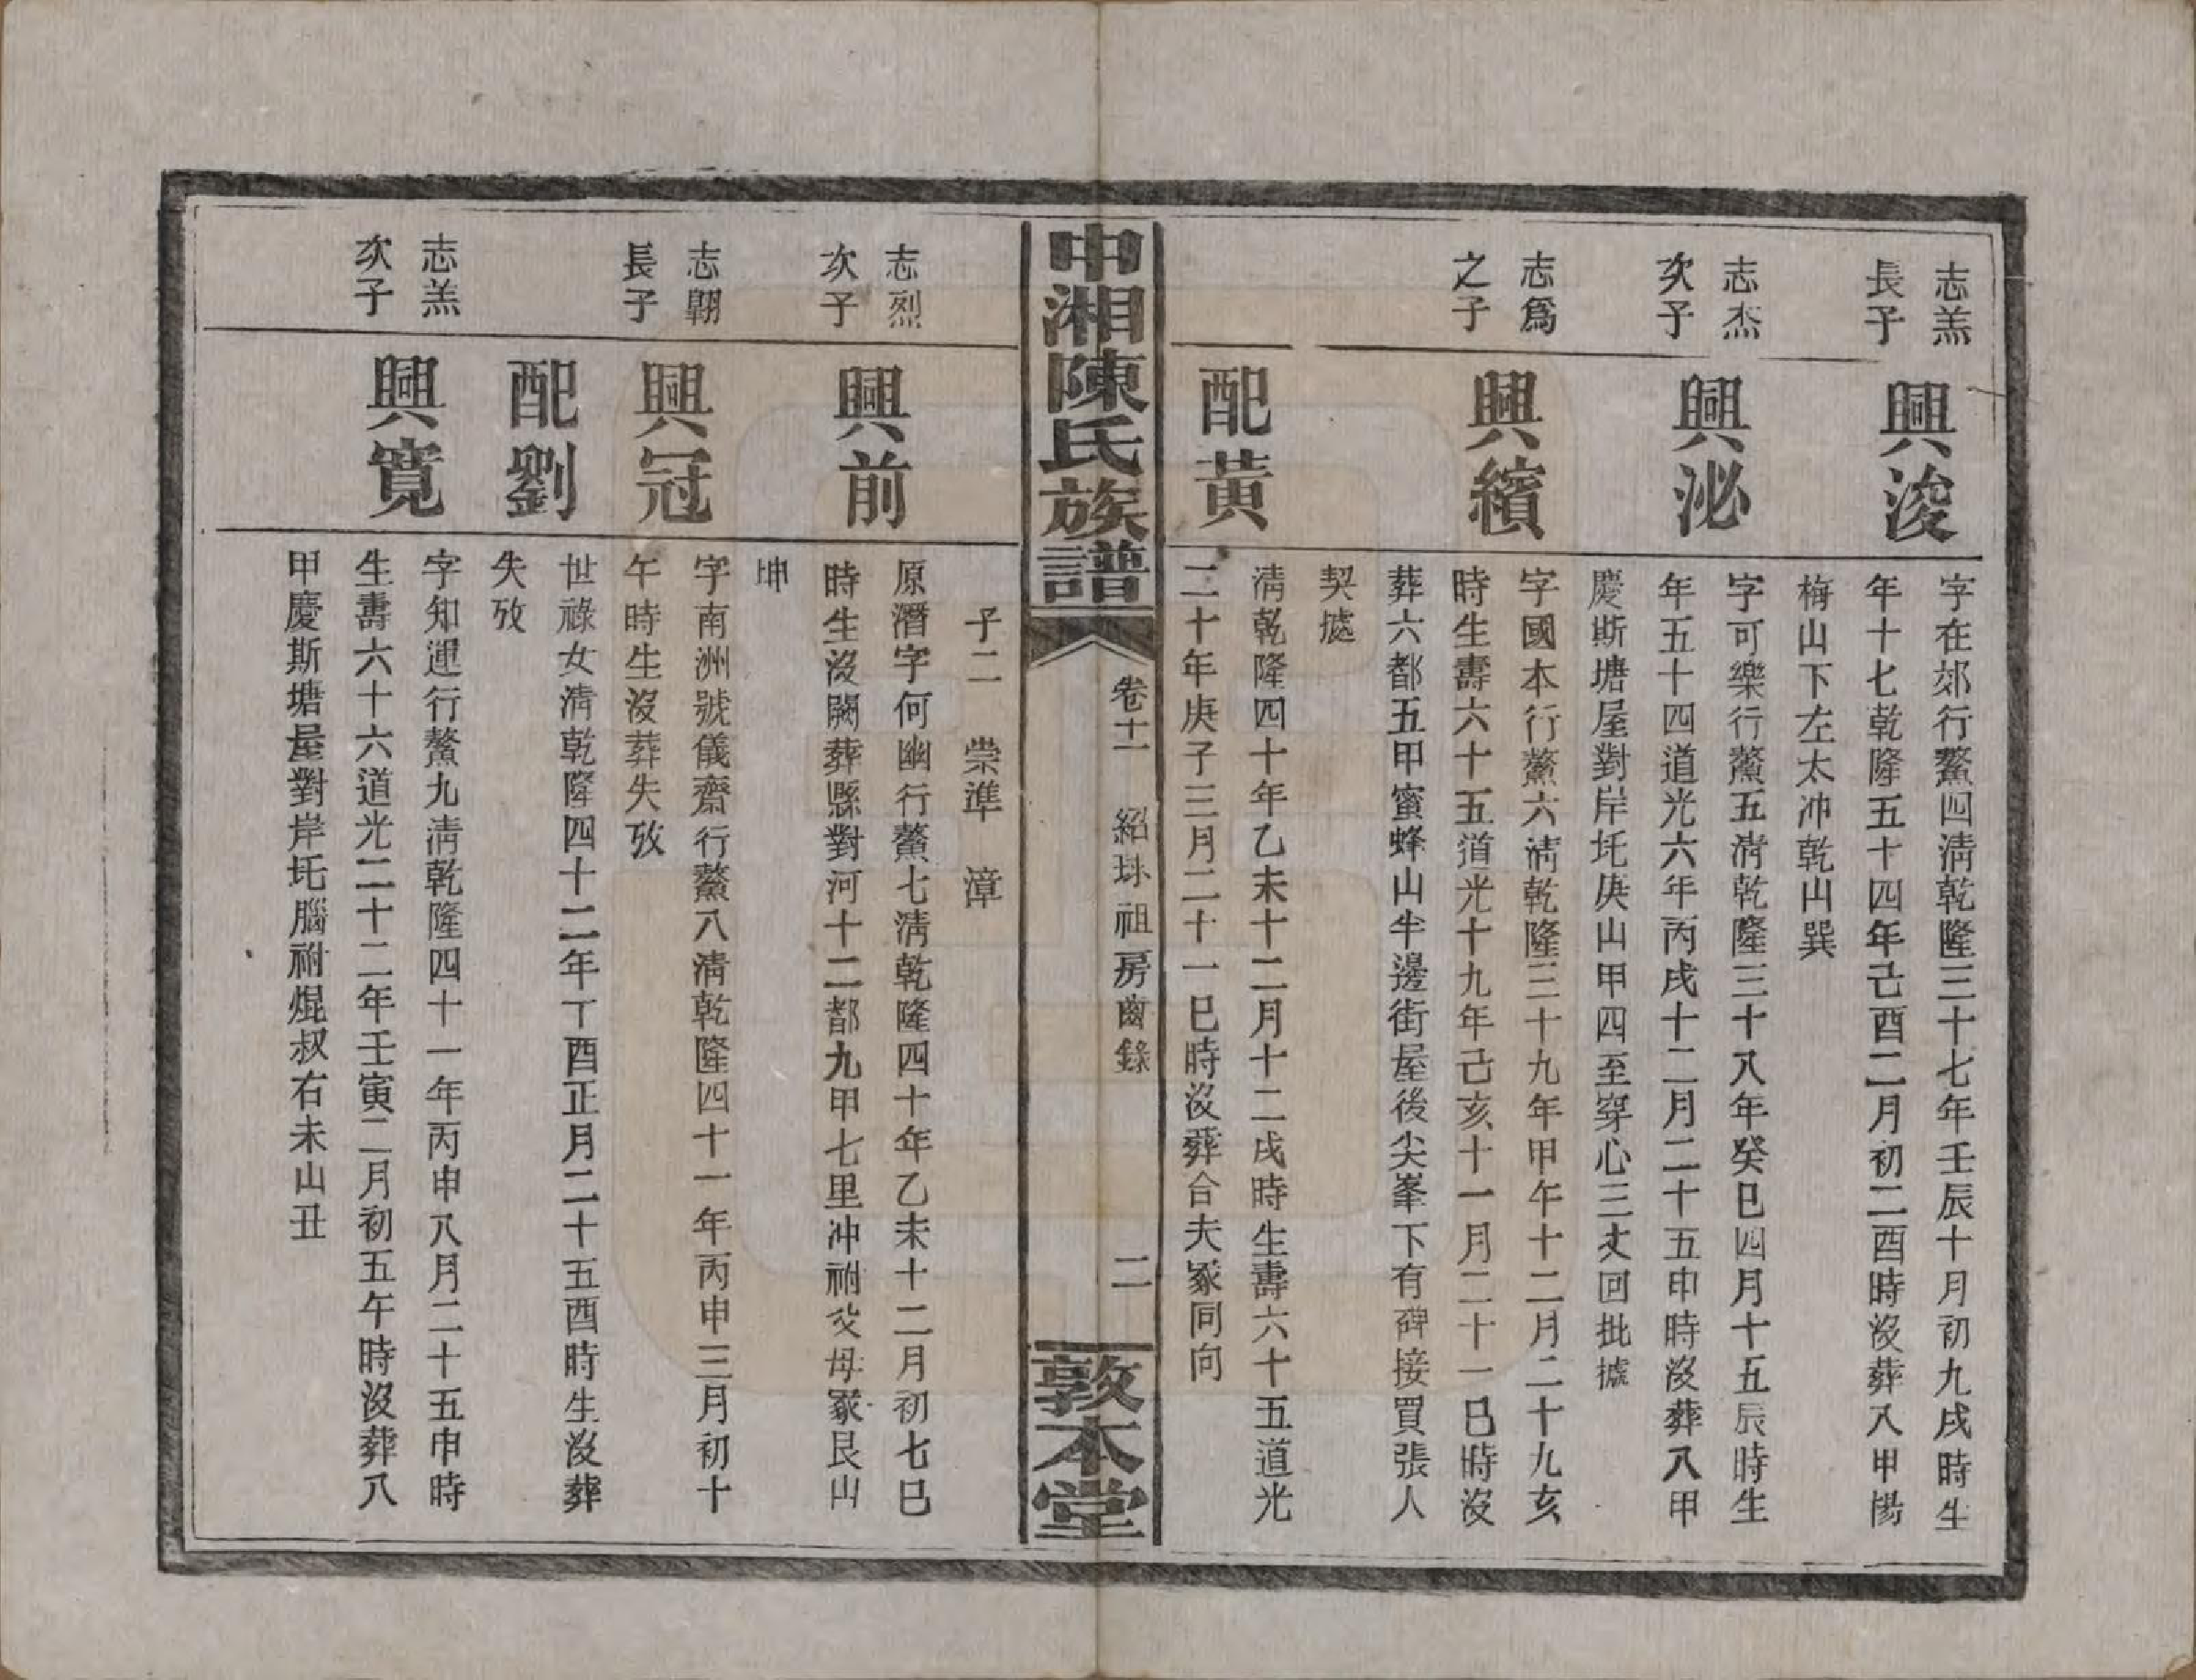 志羔
長子
興浚
字在郊行鰲四清乾隆三十七年壬辰十月初九戌時生
年十七乾隆五十四年己酉二月初二酉時沒葬八甲楊
梅山下左太冲乾山巽
志杰
次子
興泌
字可樂行鰲五清乾隆三十八年癸巳四月十五辰時生
年五十四道光六年丙戌十二月二十五申時沒葬八甲
慶斯塘屋對岸圫庚山甲四至穿心三丈回批據
志爲
之子
興繽
字國本行鰲六清乾隆三十九年甲午十二月二十九亥
時生壽六十五道光十九年己亥十一月二十一巳時沒
葬六都五甲蜜蜂山半邊街屋後尖峯下有碑接買張人
契據
配黃
清乾隆四十年乙未十二月十二戌時生壽六十五道光
二十年庚子三月二十一巳時沒葬合夫冢同向
中湘陳氏族譜
卷十一 紹 祖房齒錄
二
敦本堂
子二 崇準 漳
志烈
次子
興前
原濳字何幽行鰲七清乾隆四十年乙未十二月初七巳
時生沒闕葬縣對河十二都九甲七里冲祔父母冢艮山
坤
志翾
長子
興冠
字南洲號儀齋行鰲八清乾隆四十一年丙申三月初十
午時生沒葬失攷
配劉
世祿女清乾隆四十二年丁酉正月二十五酉時生沒葬
失攷
志羔
次子
興寬
字知運行鰲九清乾隆四十一年丙申八月二十五申時
生壽六十六道光二十二年壬寅二月初五午時沒葬八
甲慶斯塘屋對岸圫腦祔焜叔右未山丑